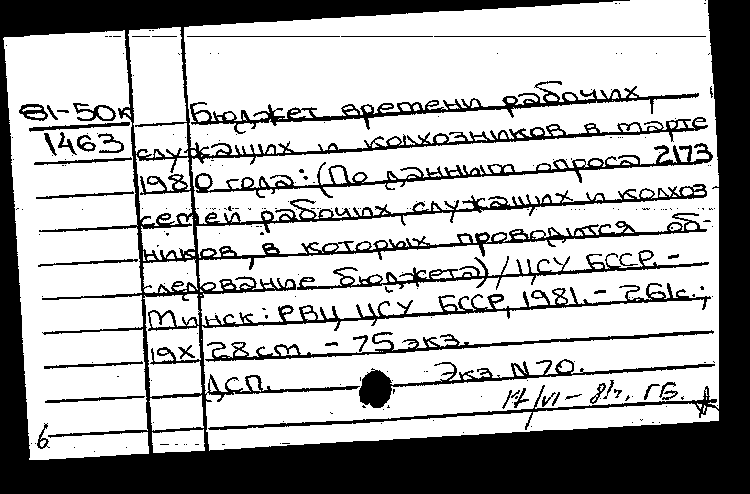 81-50к Бюджет времени рабочих,
1463 служащих и колхозников в марте
1980 года: (По данным опроса 2173
семей рабочих, служащих и колхоз-
ников, в которых проводится об-
следование бюджета) / ЦСУ БССР. -
Минск: РВЦ ЦСУ БССР, 1981. - 261с.;
19х28 см. - 75 экз.
ДСП. Экз. N 70.
17/VI - 81г. ГБ.
6